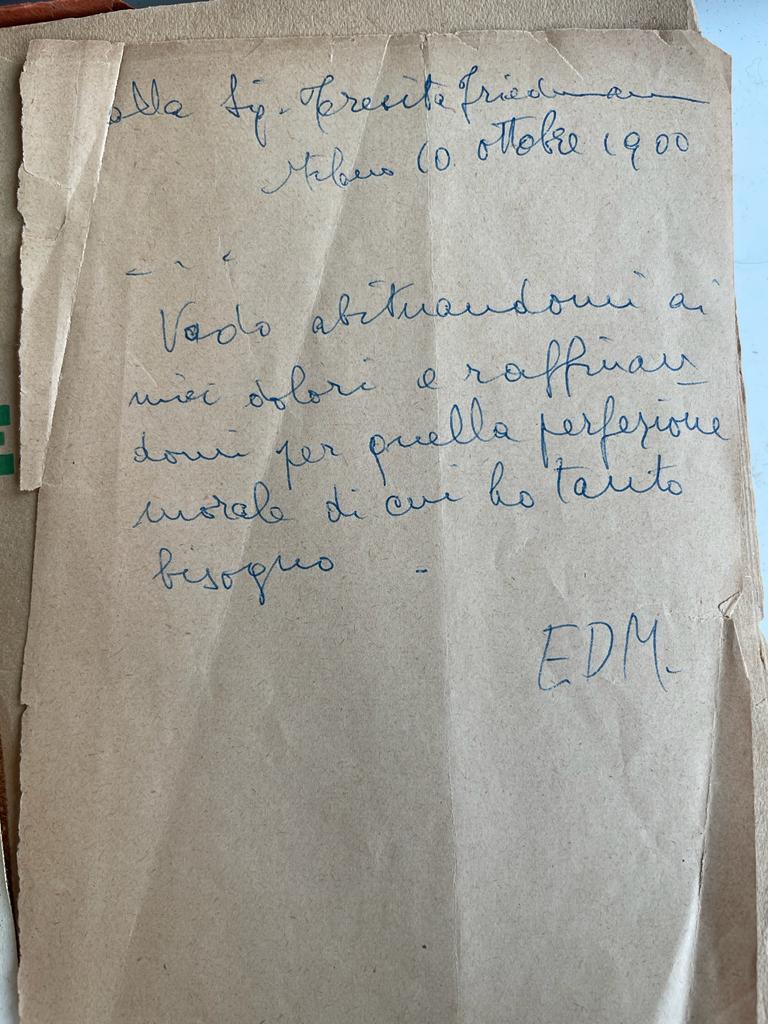 alla Sig. Teresita Friedmann
Milano 10 ottobre 1900
...
Vado abituandomi ai
miei dolori e raffinan-
domi per quella perfezione
morale di cui ho tanto
bisogno -
EDM.